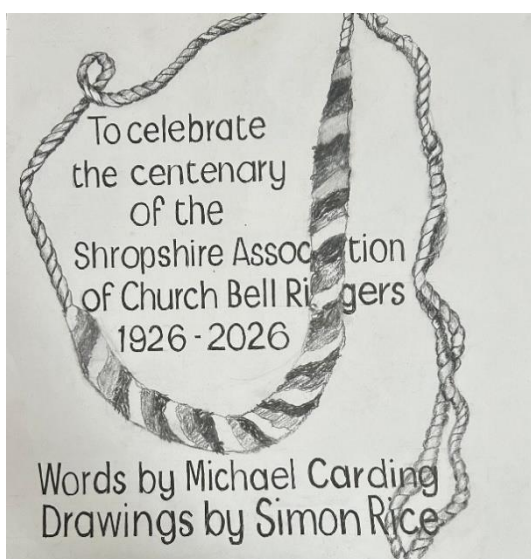 To celebrate
the centenary
of the
Shropshire Association
of Church Bell Ringers
1926 - 2026
Words by Michael Carding
Drawings by Simon Rice